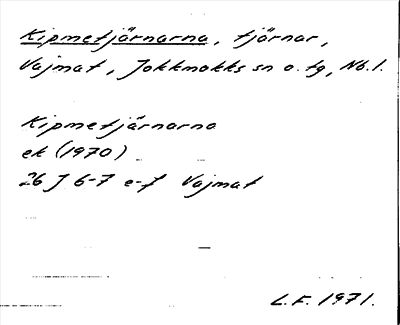 Kipmetjärnarna, tjärnar,
Vajmat, Jokkmokks sn o. tg, Nb.l.
Kipmetjärnarna
ek (1970)
26 J 6-7 e-f Vajmat
L.F. 1971.